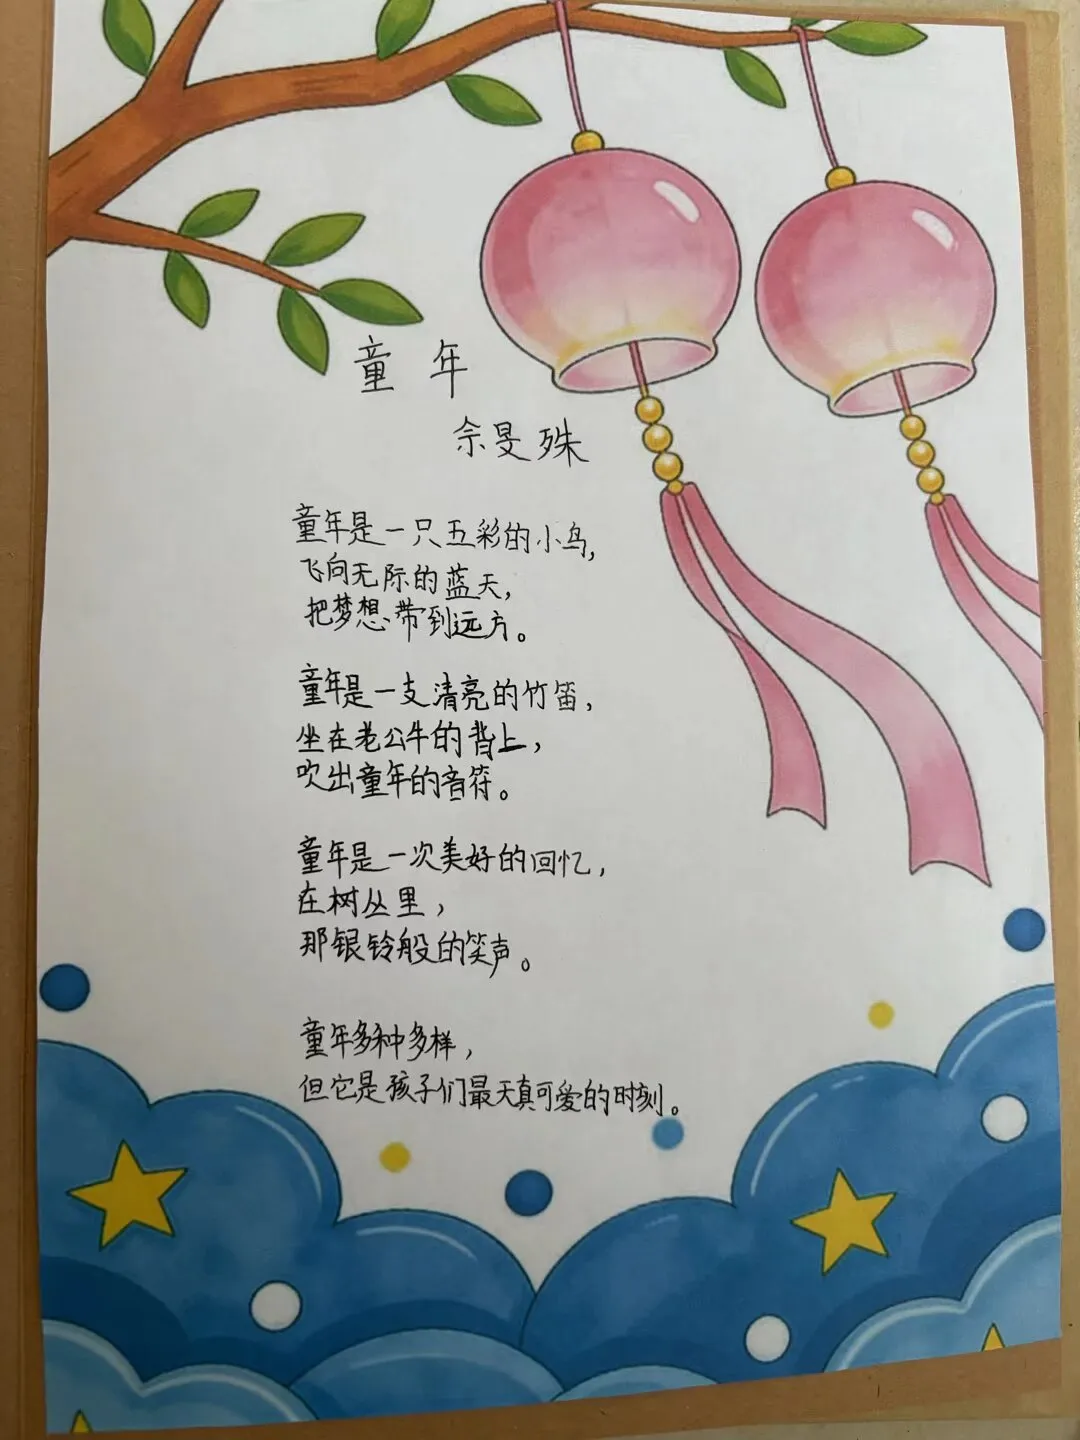 童年
佘旻殊
童年是一只五彩的小鸟,
飞向无际的蓝天,
把梦想带到远方。
童年是一支清亮的竹笛,
坐在老公牛的背上,
吹出童年的音符。
童年是一次美好的回忆,
在树丛里,
那银铃般的笑声。
童年多种多样,
但它是孩子们最天真可爱的时刻。